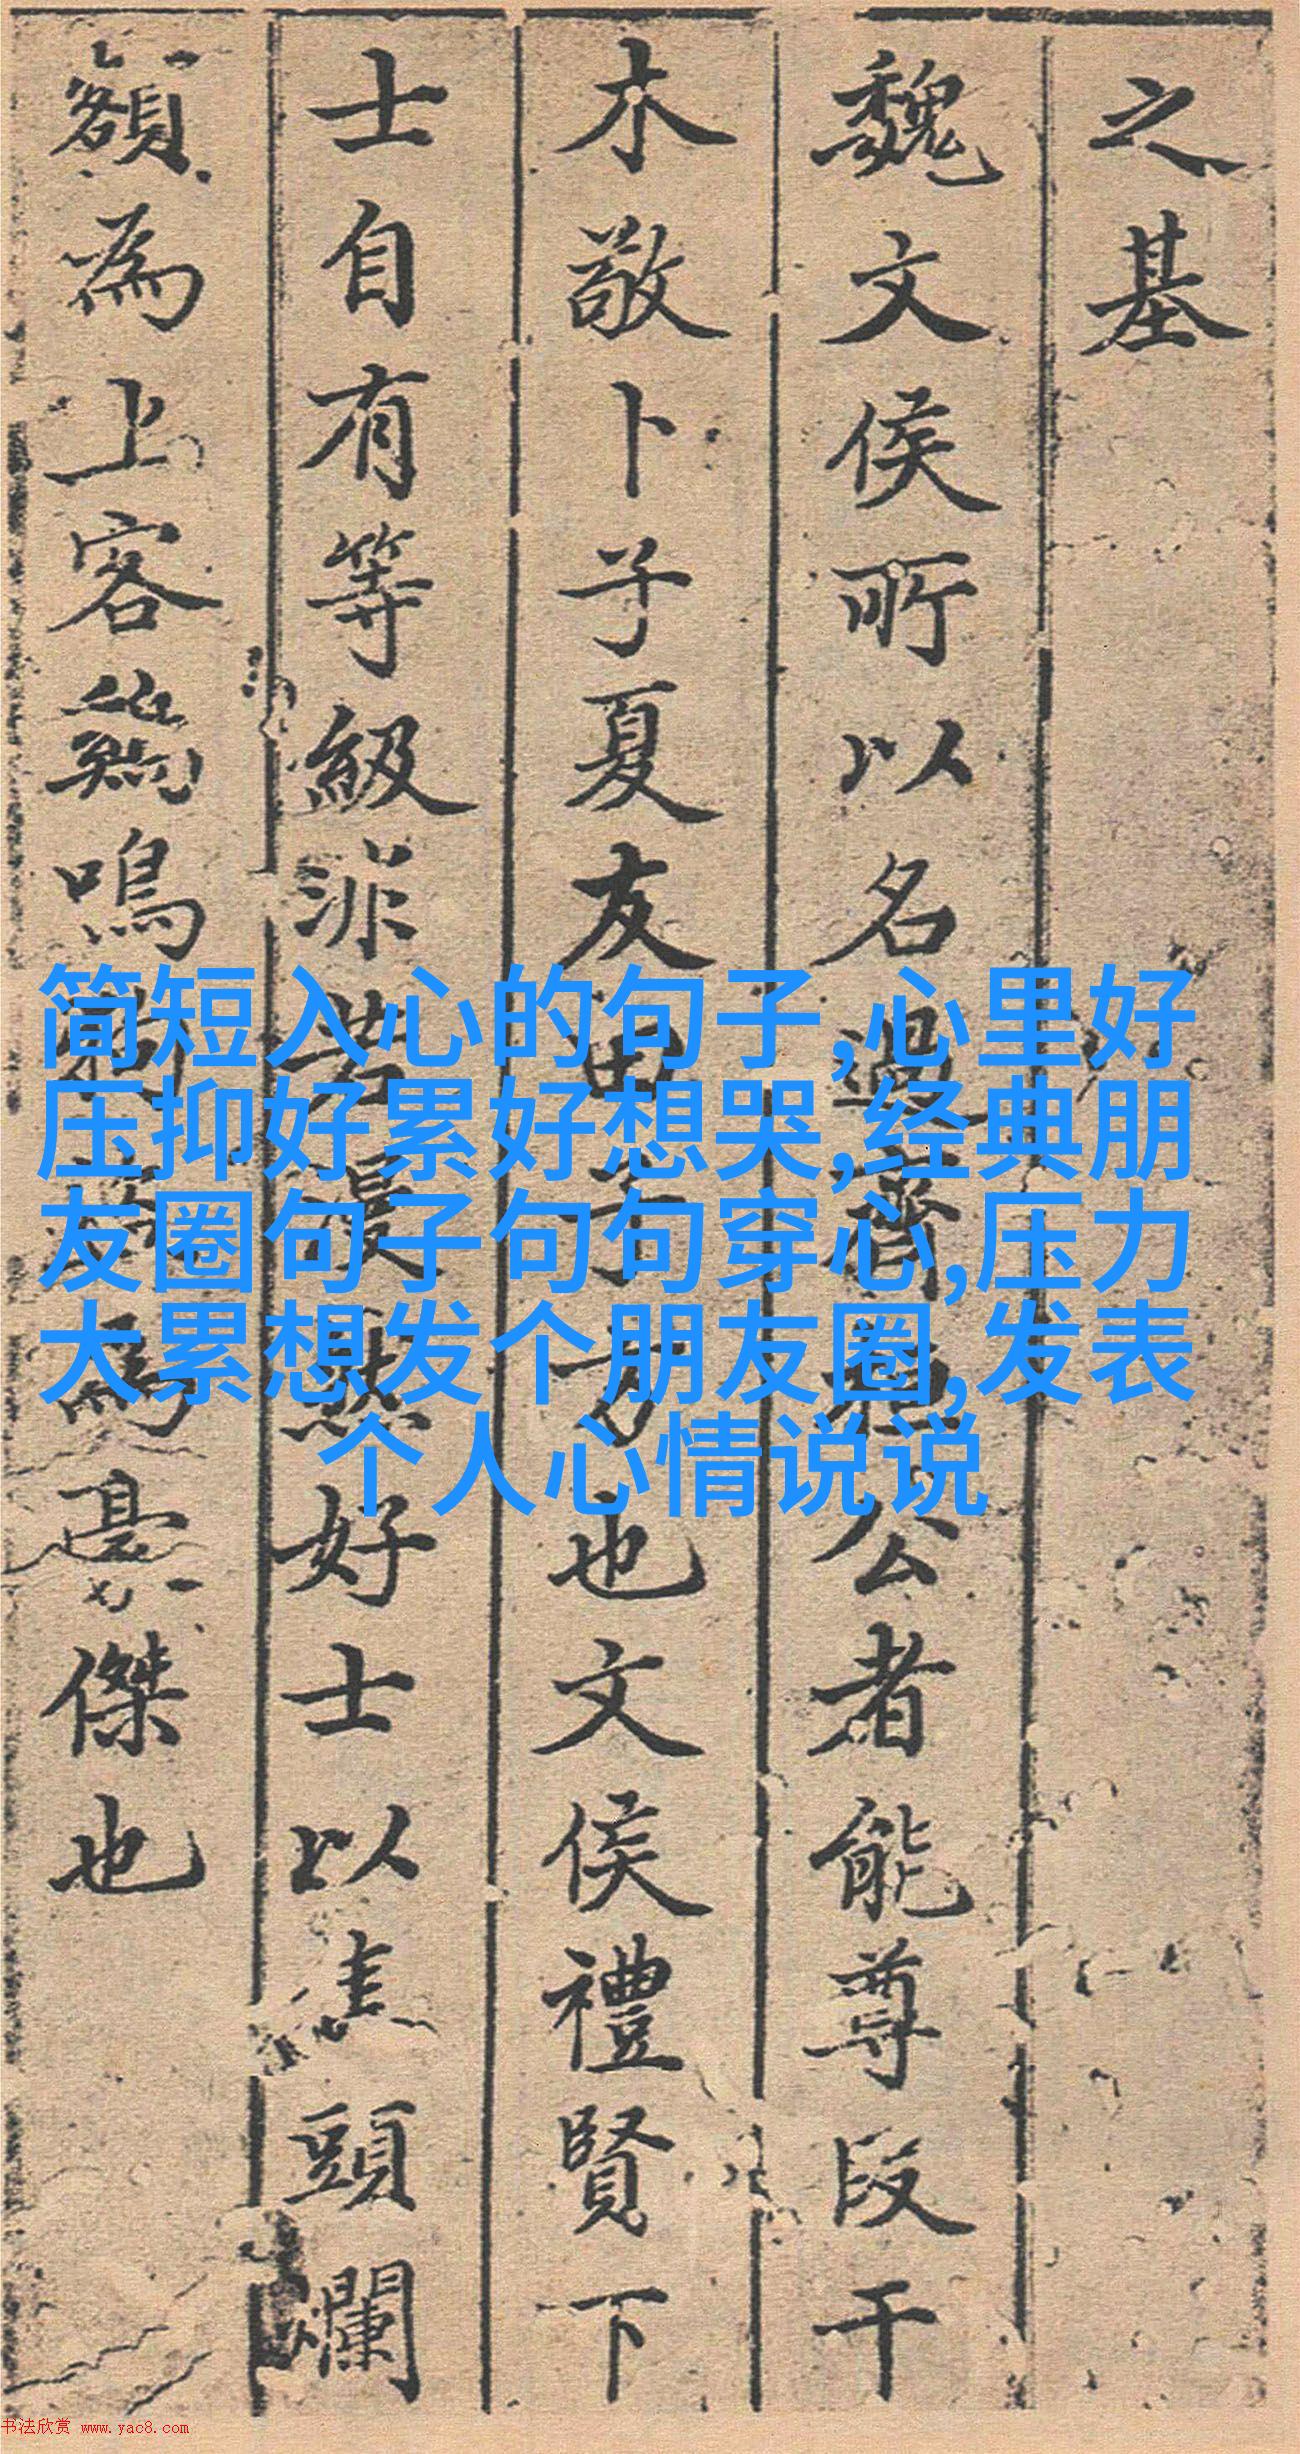 之基
魏文侯所以名過齊桓公者能尊段干
木敬卜子夏友田子方也文侯禮賢下
士自有等級非若漫然好士以焦頭爛
額為上客鷄鳴狗為豪傑也
简短入心的句子,心里好
压抑好累好想哭,经典朋
友圈句子句句穿心,压力
大累想发个朋友圈,发表
个人心情说说
书法欣赏 www.yac8.com